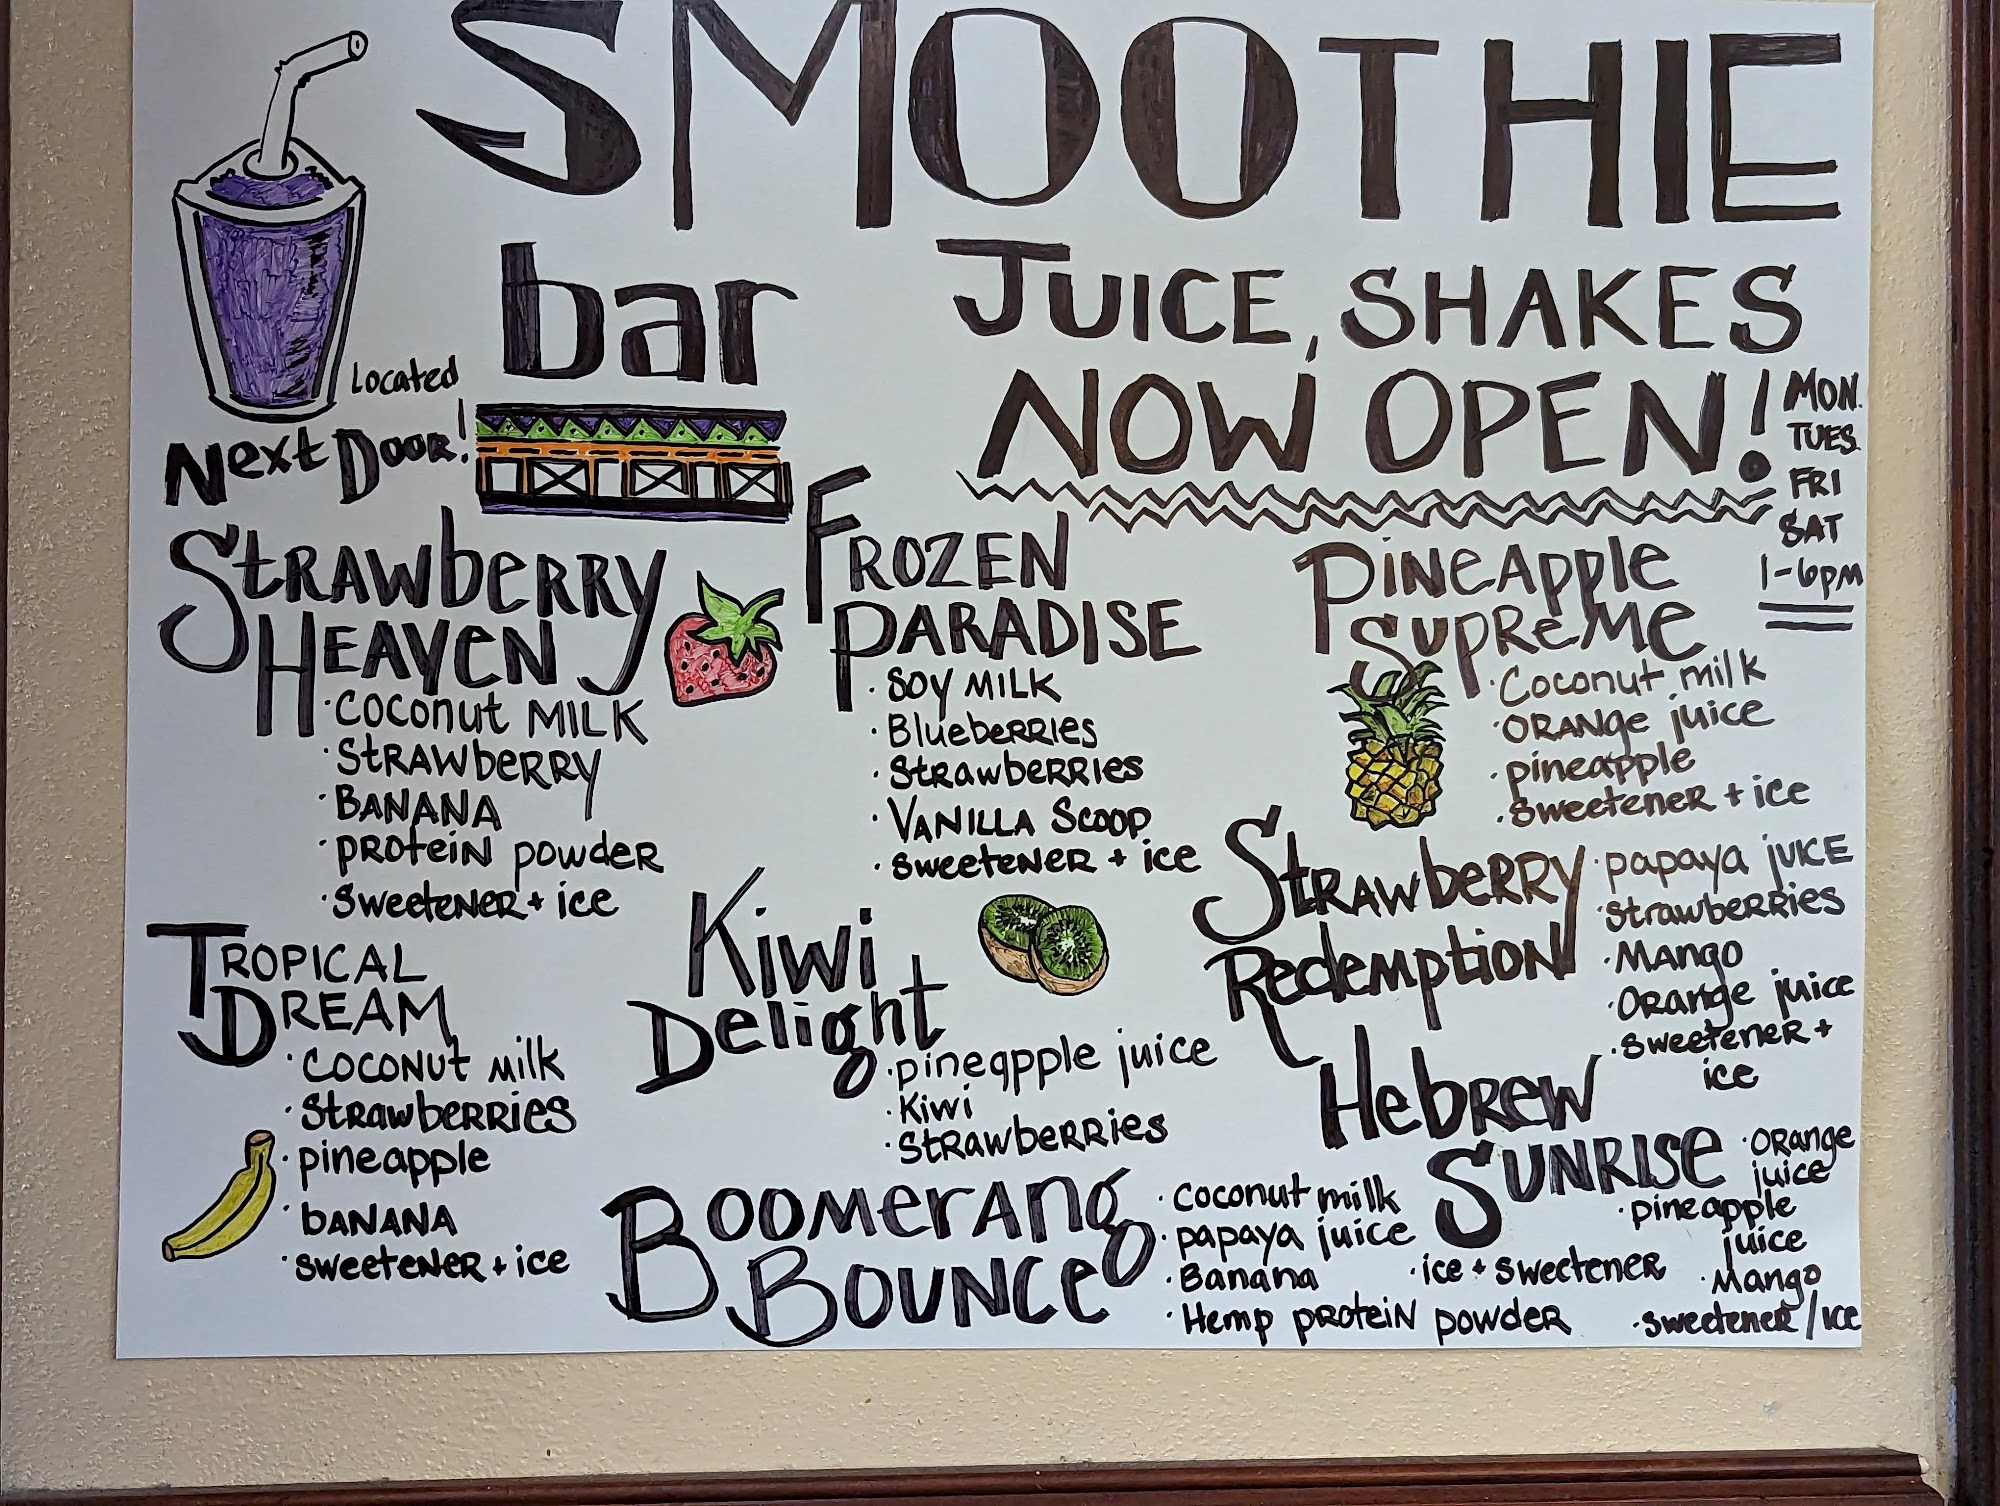 SMOOTHIE
bar
JUICE, SHAKES
NOW OPEN!
MON.
TUES.
FRI
SAT
1-6pm
Located
Next Door!
Strawberry
Heaven
· Coconut MILK
· Strawberry
· BANANA
· protein powder
· sweetener + ice
Frozen
Paradise
· Soy MILK
· Blueberries
· Strawberries
· Vanilla Scoop
· sweetener + ice
Pineapple
Supreme
· Coconut milk
· Orange juice
· pineapple
· sweetener + ice
Tropical
Dream
· coconut milk
· strawberries
· pineapple
· banana
· sweetener + ice
Kiwi
Delight
· pineapple juice
· Kiwi
· Strawberries
Strawberry
Redemption
· papaya juice
· strawberries
· Mango
· Orange juice
· sweetener +
ice
Boomerang
Bounce
· coconut milk
· papaya juice
· Banana
· Hemp protein powder
· ice + sweetener
Hebrew
Sunrise
· Orange
juice
· pineapple
juice
· Mango
· sweetener / ice